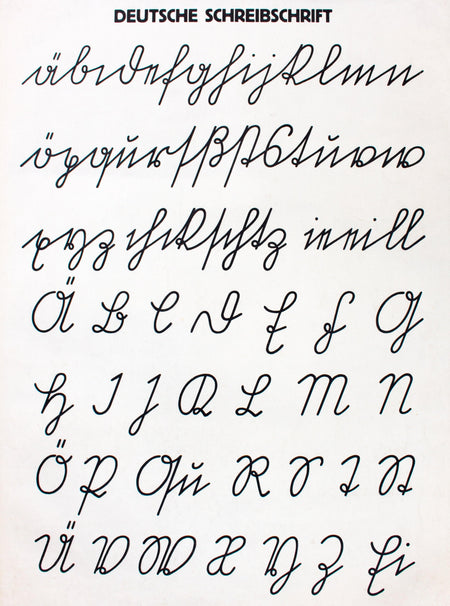 DEUTSCHE SCHREIBSCHRIFT
äbcdefghijklmn
öpqurſßſtstuvw
xyz chckſchtz ieeill
Ä B C D E F G
H I J K L M N
Ö P Qu R S T St
Ü V W X Y Z Ei